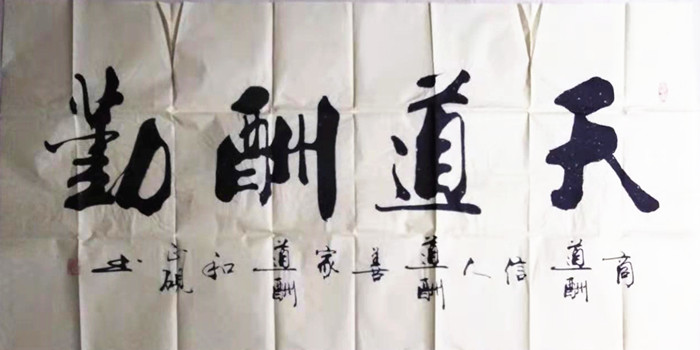 天道酬勤
商道酬信人道酬善家道酬和 硯书